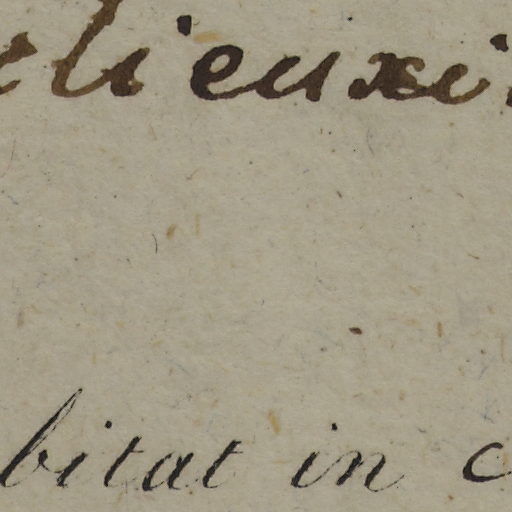 elieuxi
bitat in c